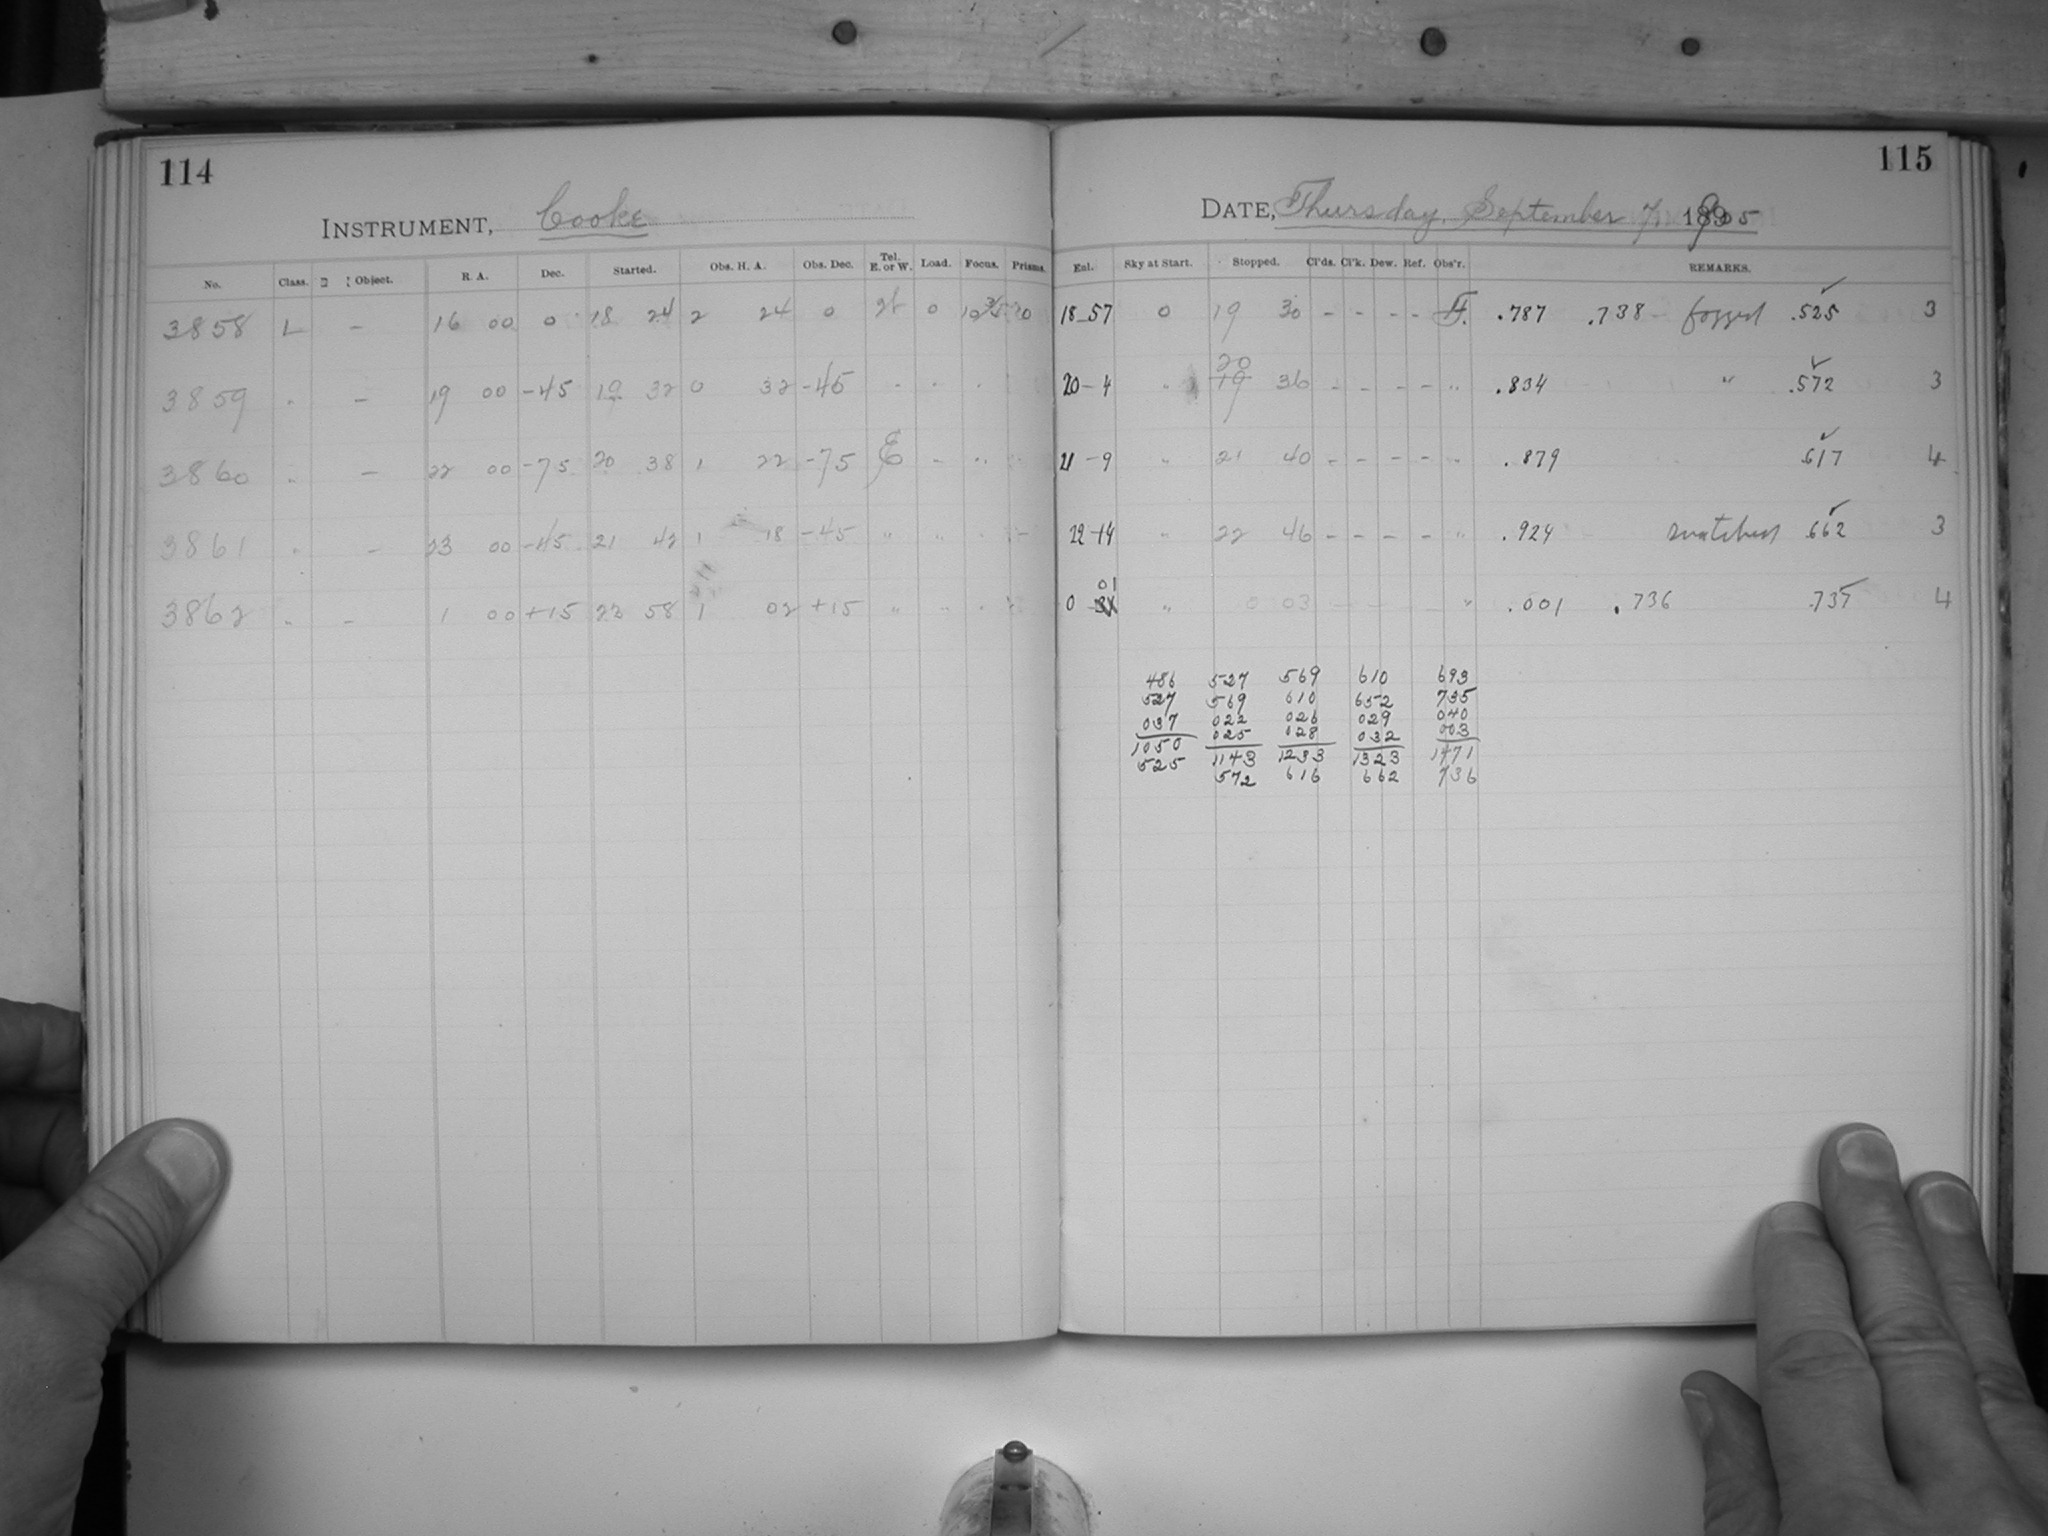 114
INSTRUMENT, Cooke
No. Class. Object. R. A. Dec. Started. Obs. H. A. Obs. Dec. Tel. E. or W. Load. Focus. Prisms.
3858 L – 16 00 0 18 24 2 24 0 0 10
3859 " – 19 00 -45 19 32 0 32 -45 " " "
3860 " – 22 00 -75 20 38 1 22 -75 E " "
3861 " – 23 00 -45 21 42 1 18 -45 " " "
3862 " – 1 00 +15 22 58 1 02 +15 " " "
115
DATE, Thursday, September 7, 1905
Eql. Sky at Start. Stopped. Cl'ds. Cl'k. Dew. Ref. Obs'r. REMARKS.
18-57 0 19 30 - - - - .787 .738 fogged .525 3
20-4 " 20 19 36 - - - - " .834 " .572 3
21-9 " 21 40 - - - - " .879 .617 4
22-14 " 22 46 - - - - " .924 .662 3
0 01 " 0 03 " .001 .736 .735 4
486 527 569 610 693
527 569 610 652 735
037 022 026 029 040
025 028 032 003
1050 1143 1233 1323 1471
525 572 616 662 736